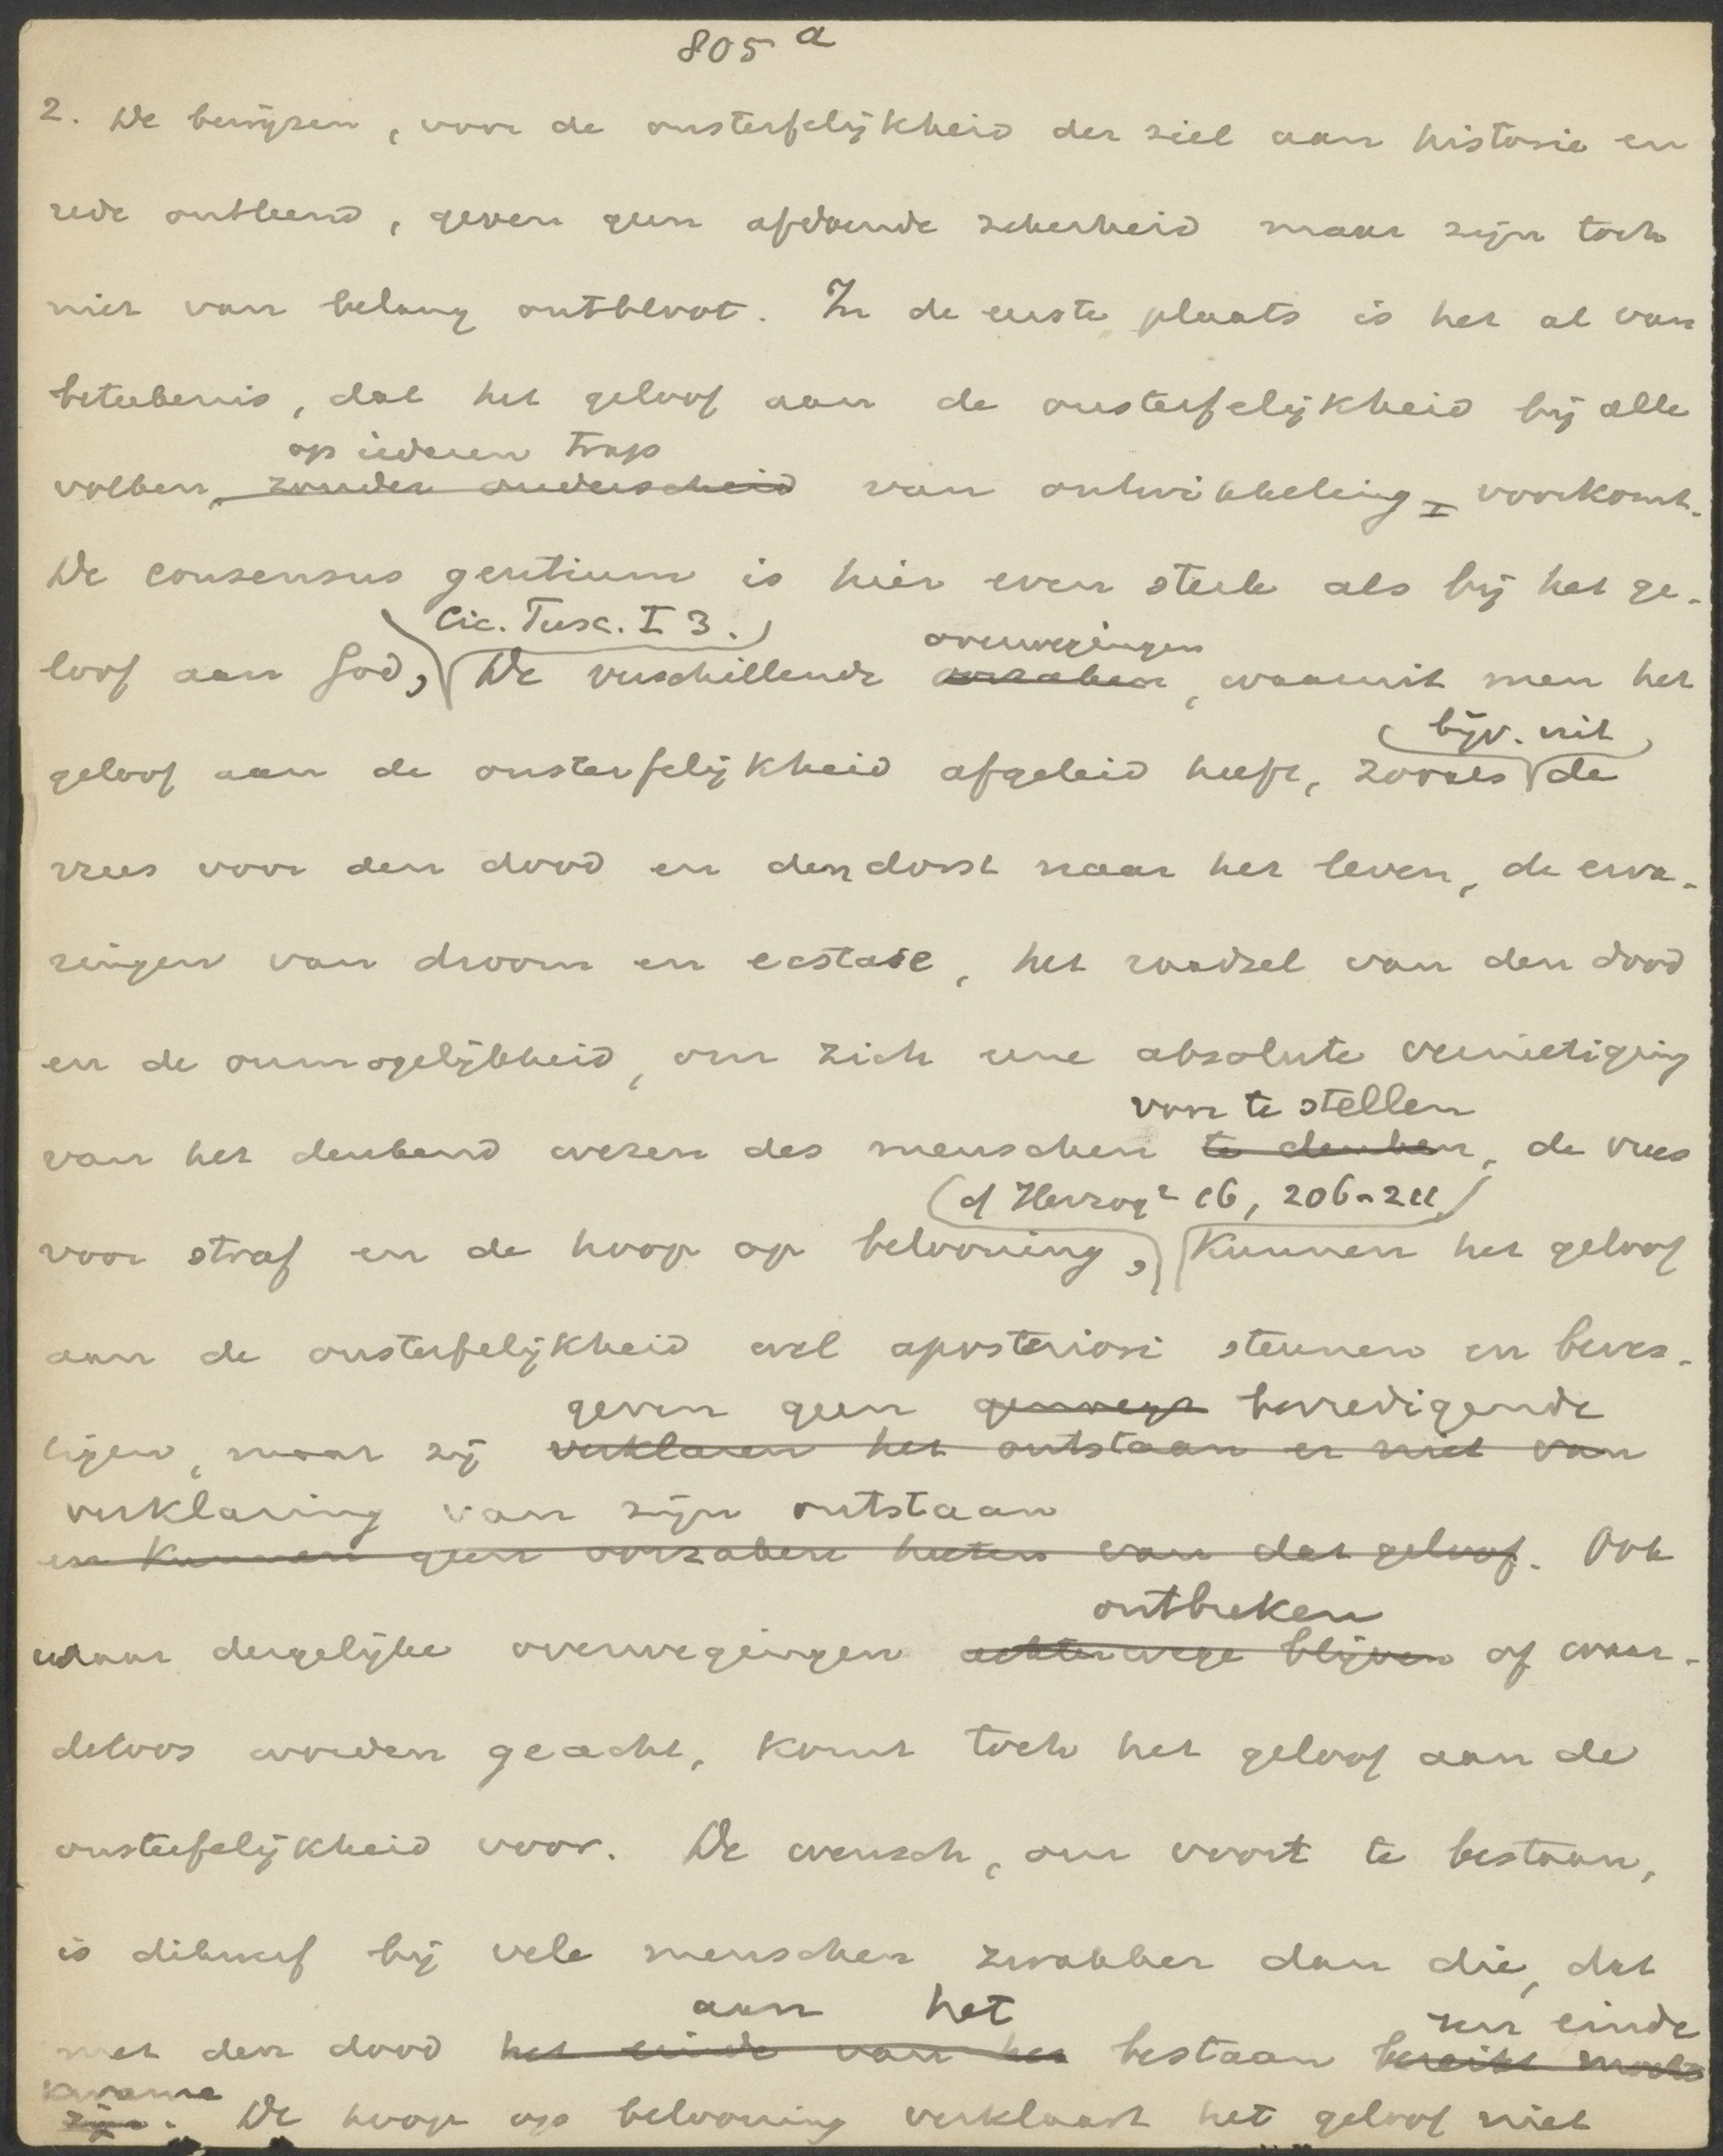 805 a
2. De bewijzen, voor de onsterfelijkheid der ziel aan historie en
rede ontleend, geven geen afdoende zekerheid maar zijn toch
niet van belang ontbloot. In de eerste plaats is het al van
beteekenis, dat het geloof aan de onsterfelijkheid bij alle
op iederen trap
volken, zonder onderscheid van ontwikkeling voorkomt.
De consensus gentium is hier even sterk als bij het ge-
Cic. Tusc. I 3.
overwegingen
loof aan God, De verschillende oorzaken, waaruit men het
bijv. uit
geloof aan de onsterfelijkheid afgeleid heeft, zooals de
vrees voor den dood en den dorst naar het leven, de erva-
ringen van droom en ecstase, het raadsel van den dood
en de onmogelijkheid, om zich eene absolute vernietiging
voor te stellen
van het denkend wezen des menschen te denken, de vrees
(cf Herzog² 16, 206-211)
voor straf en de hoop op belooning, kunnen het geloof
aan de onsterfelijkheid wel aposteriori steunen en beves-
geven geen genoegz bevredigende
tigen, maar zij verklaren het ontstaan er niet van
verklaring van zijn ontstaan
en kunnen geen oorzaken heeten van dat geloof. Ook
ontbreken
waar dergelijke overwegingen achterwege blijven of waar-
deloos worden geacht, komt toch het geloof aan de
onsterfelijkheid voor. De wensch, om voort te bestaan,
is dikwerf bij vele menschen zwakker dan die, dat
aan het een einde
met den dood het einde van het bestaan bereikt mocht
kwame
zijn. De hoop op belooning verklaart het geloof niet